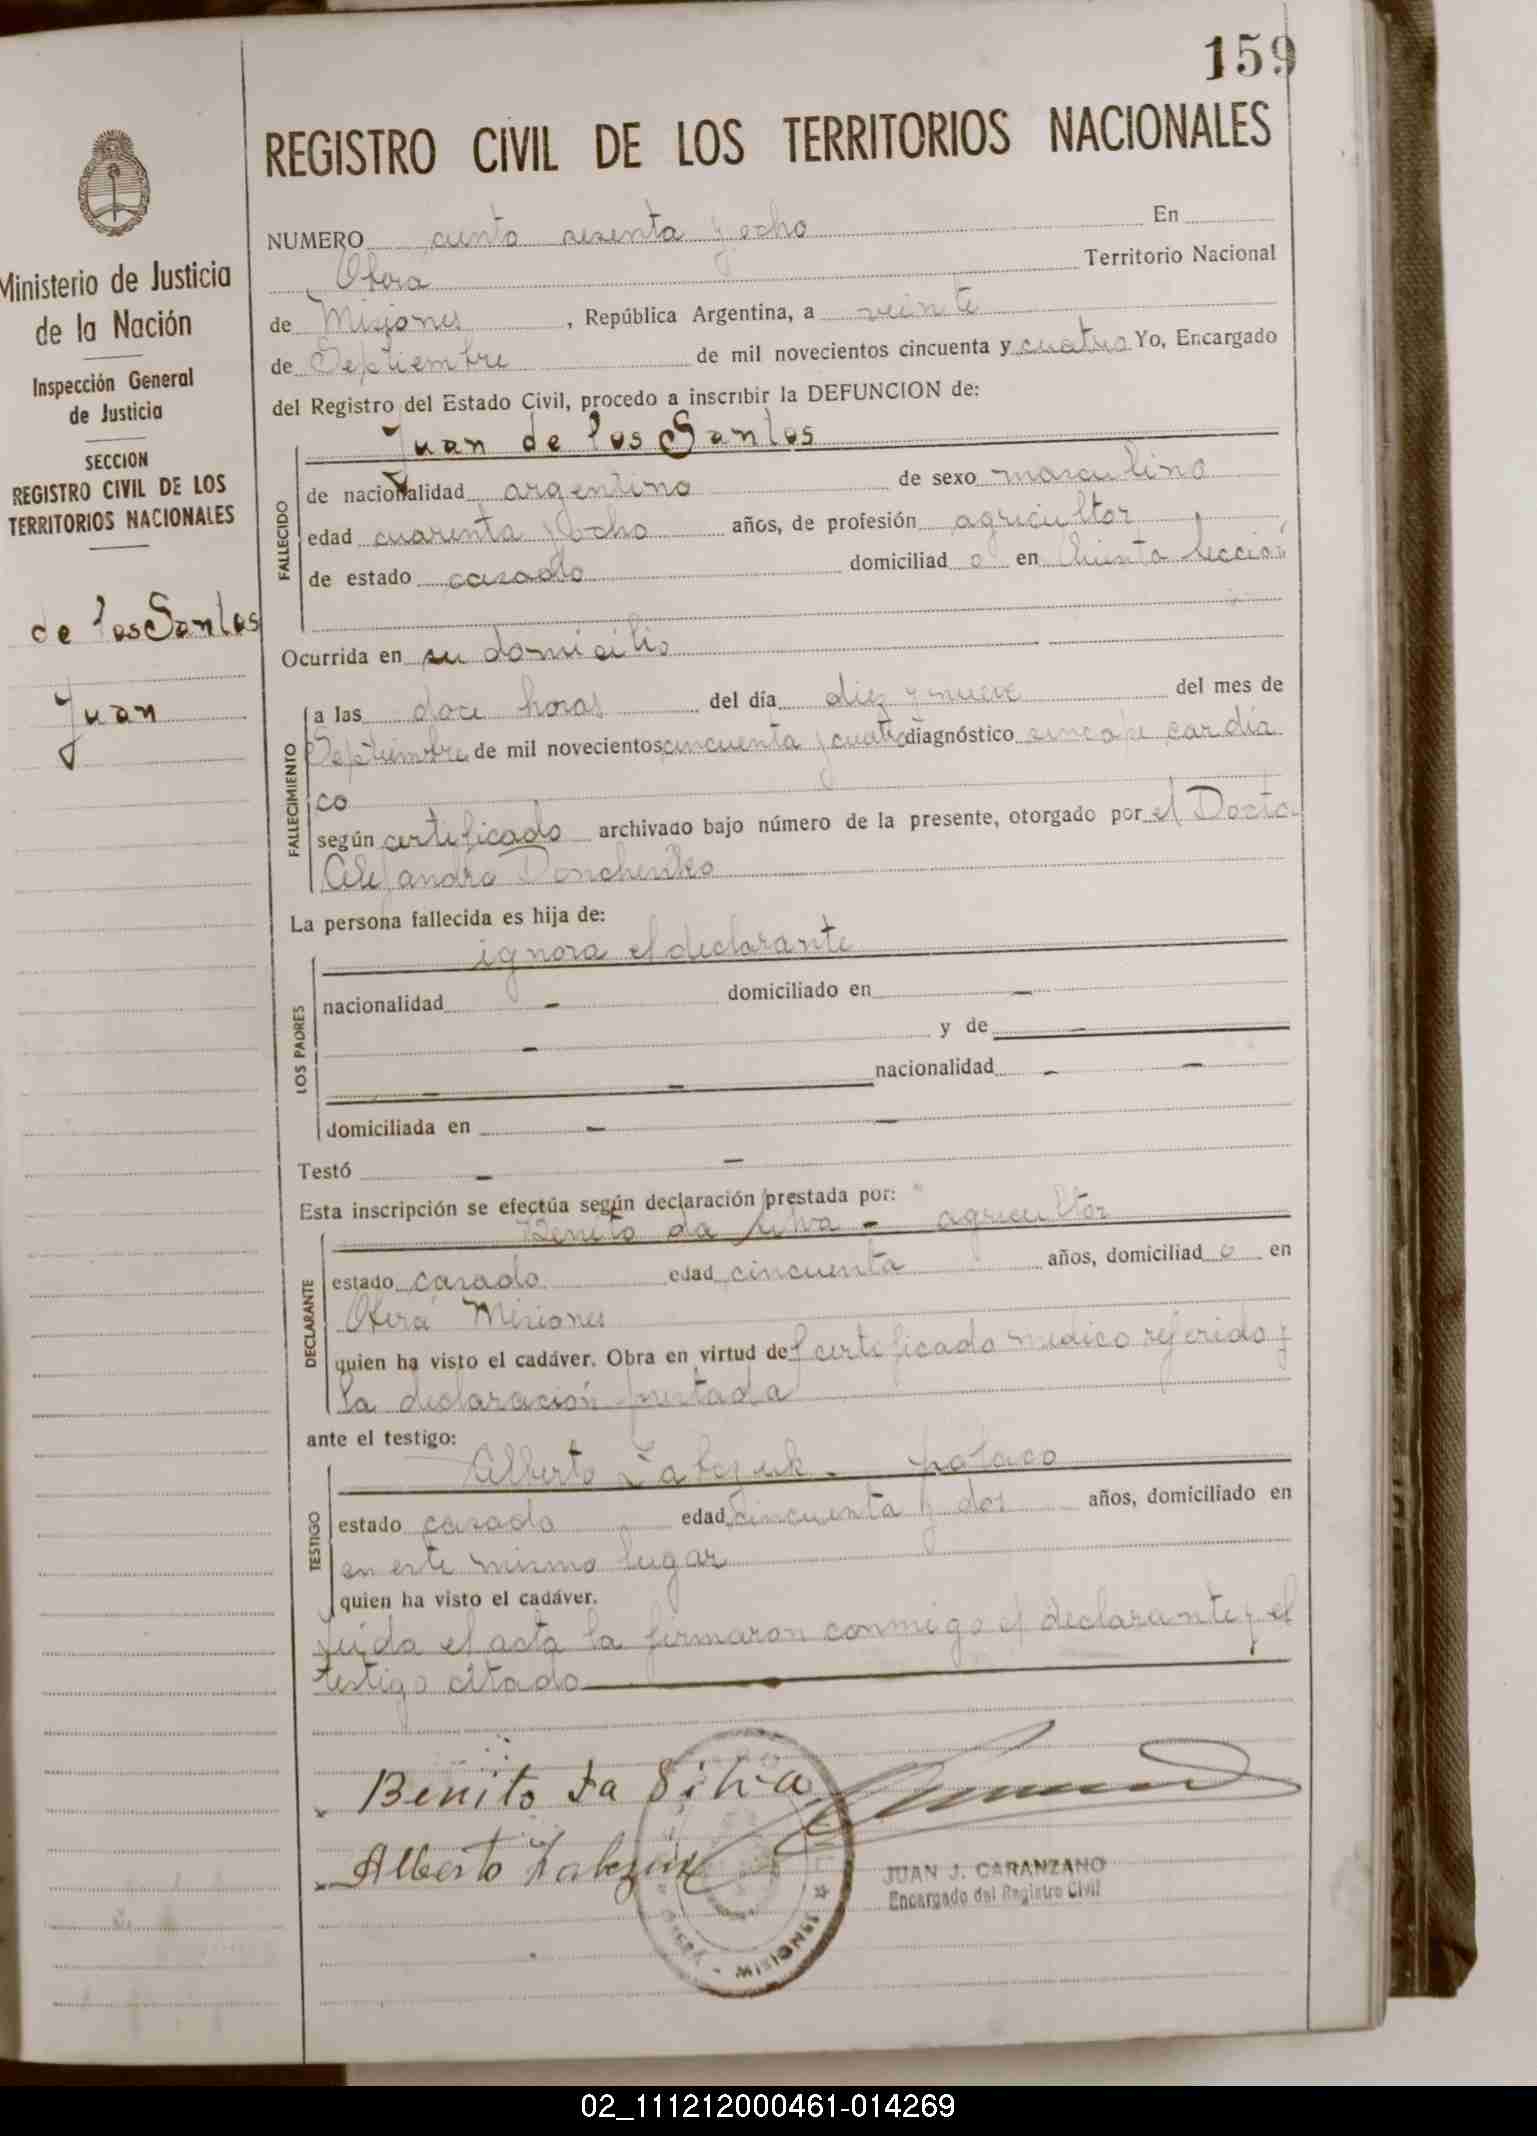 159
REGISTRO CIVIL DE LOS TERRITORIOS NACIONALES
Ministerio de Justicia
de la Nación
Inspección General
de Justicia
SECCION
REGISTRO CIVIL DE LOS
TERRITORIOS NACIONALES
de los Santos
Juan
NUMERO ciento sesenta y ocho En
Obera Territorio Nacional
de Misiones, República Argentina, a veinte
de Septiembre de mil novecientos cincuenta y cuatro Yo, Encargado
del Registro del Estado Civil, procedo a inscribir la DEFUNCION de:
FALLECIDO
Juan de los Santos
de nacionalidad argentino de sexo masculino
edad cuarenta y ocho años, de profesión agricultor
de estado casado domiciliad o en Quinta Sección
Ocurrida en su domicilio
FALLECIMIENTO
a las doce horas del día diez y nueve del mes de
Septiembre de mil novecientos cincuenta y cuatro diagnóstico sincope cardia
co
según certificado archivado bajo número de la presente, otorgado por el Docto
Alejandro
La persona fallecida es hija de:
LOS PADRES
ignora el declarante
nacionalidad - domiciliado en -
- y de -
- - nacionalidad - -
domiciliada en - -
Testó - -
Esta inscripción se efectúa según declaración prestada por:
DECLARANTE
Benito da Silva - agricultor
estado casado edad cincuenta años, domiciliad o en
Oberá Misiones
quien ha visto el cadáver. Obra en virtud del certificado medico referido y
la declaración prestada
ante el testigo:
TESTIGO
Alberto - polaco
estado casado edad cincuenta y dos años, domiciliado en
en este mismo lugar
quien ha visto el cadáver.
Leida el acta la firmaron conmigo el declarante y el
testigo citado
Benito Da Silva
Alberto
JUAN J. CARANZANO
Encargado del Registro Civil
MISIONES
02_111212000461-014269